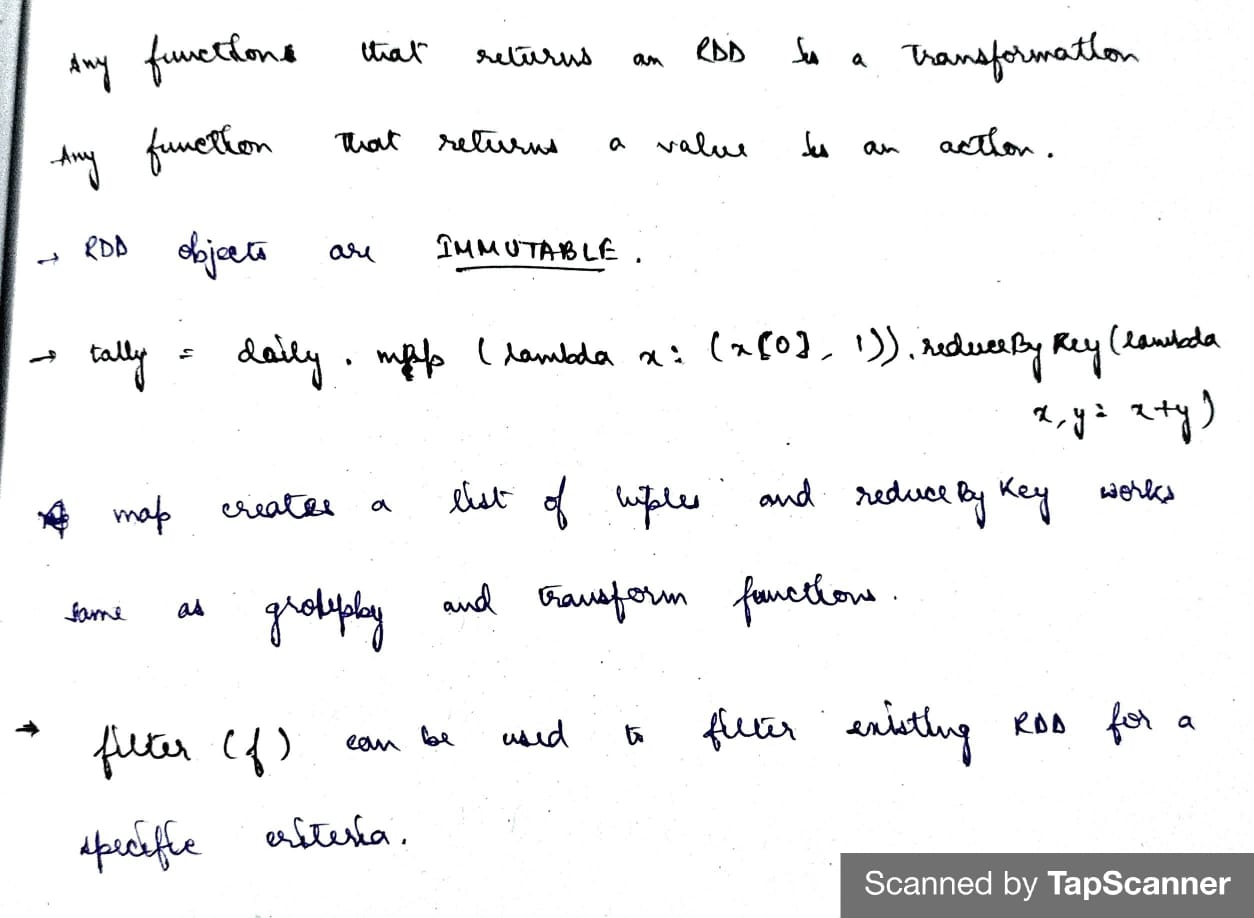 Any functions that returns an RDD is a Transformation
Any function that returns a value is an action.
→ RDD objects are IMMUTABLE.
→ tally = daily . map (lambda x: (x[0], 1)).reduceBy Key (lambda
x, y: x+y)
map creates a list of tuples and reduce By Key works
same as groupby and transform functions.
→ filter (f) can be used to filter existing RDD for a
specific criteria.
Scanned by TapScanner